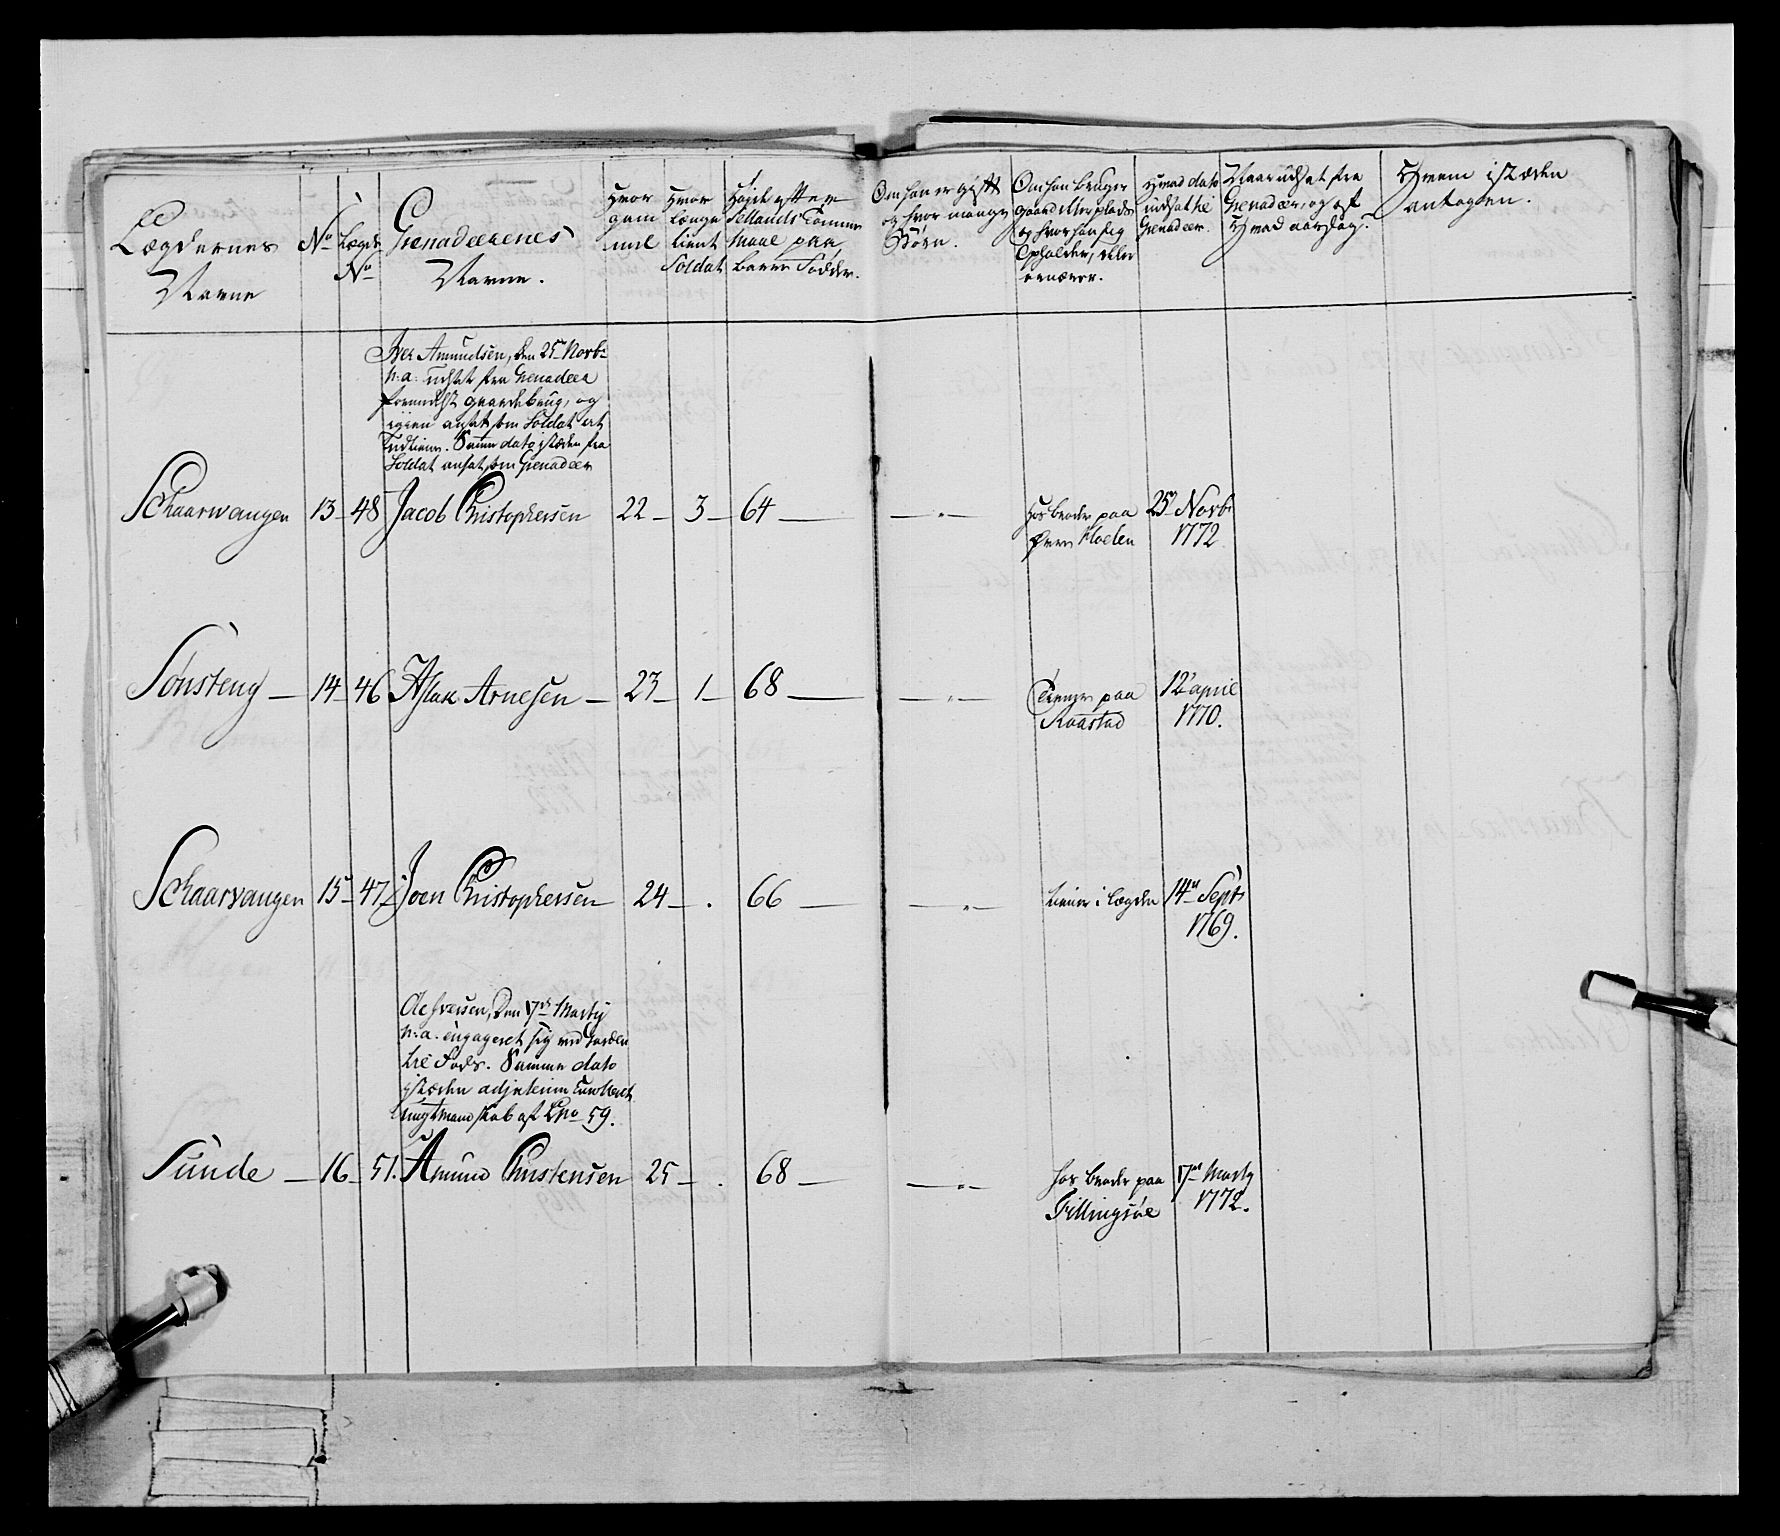 Lægdernes
Navne
No
Lægde
No
Grenadeerenes
Navne.
Hvor
gam̄el
Hvor
længe
tient
Soldat
Højde efter
Sellands Tomme
Maal paa
barre Fødder.
Om han er gift
og hvor mange
Børn.
Om han bruger
gaard eller plads
og hvor han sig
opholder, eller
ernærer.
Hvad dato
udsat til
Grenadeer.
Naar udsat fra
Grenadeer, og af
Hvad aarsag.
Hvem i stæden
antagen.
Iver Amundsen, den 25 Novb:
h: a: udsat fra Grenadeer
formedelst gaardebrug, og
igien ansat som Soldat at
udtiene. Samme dato i stæden fra
Soldat ansat som Grenadeer
Schaarwangen 13 - 48 Jacob Christophersen 22 - 3 - 64 —
hos broder paa
Øvre Kloelen
25 Novb:
1772
Sønsteng - 14 - 46 Aslak Arnesen - 23 - 1 - 68 —
Drenge paa
Raastad
12 april
1770.
Schaarvangen 15 - 47 Joen Christophersen 24 - . 66 —
tiener i Lægden
14 Septr
1769.
Ole Iversen, den 17de Martij
h: a: engageret sig ved
til Fods. Samme dato
i stæden
ungt mandskab af L No 59.
Sunde - 16 - 51. Amund Christensen 25 - . 68 —
hos broder paa
Fillingsøe
17de Martij
1772.